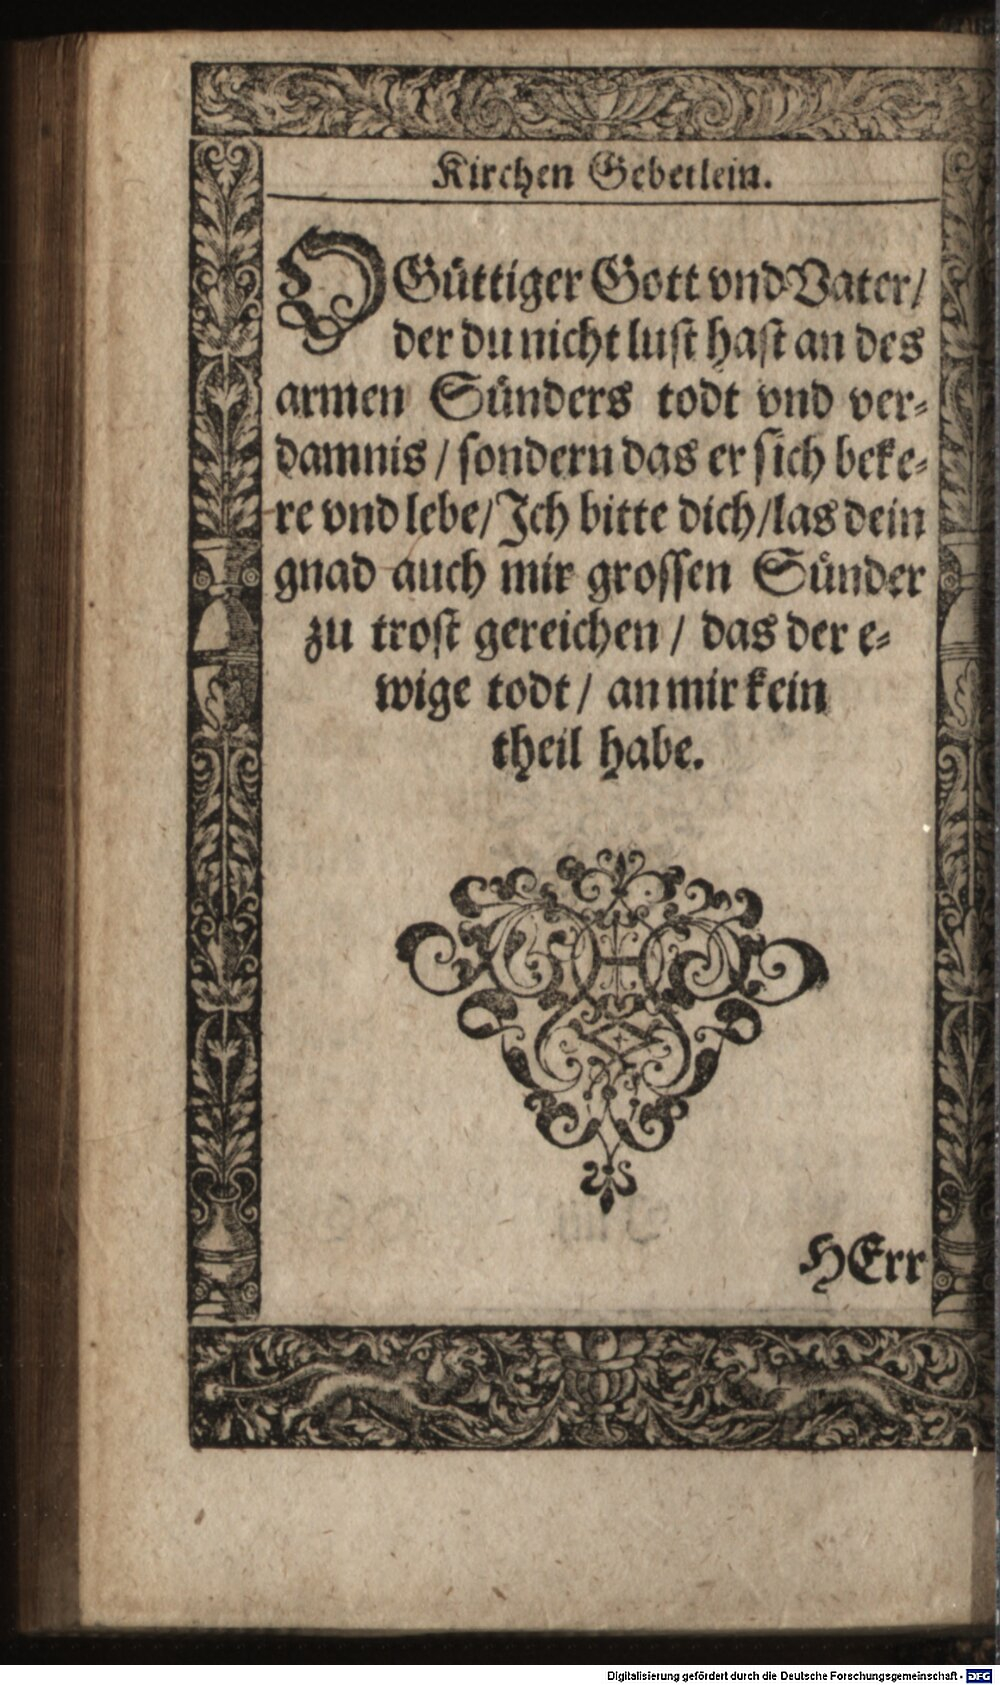 Kirchen Gebetlein.
O Güttiger Gott vnd Vater/
der du nicht lust hast an des
armen Sünders todt vnd ver-
damnis / sondern das er sich beke-
re vnd lebe/ Ich bitte dich/ las dein
gnad auch mir grossen Sünder
zu trost gereichen / das der e-
wige todt / an mir kein
theil habe.
HErr
Digitalisierung gefördert durch die Deutsche Forschungsgemeinschaft - DFG